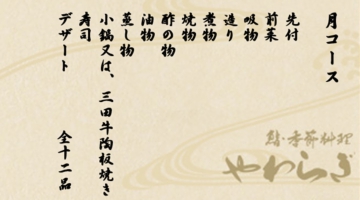 月コース
先付
前菜
吸物
造り
煮物
焼物
酢の物
油物
蒸し物
小鍋又は、三田牛陶板焼き
寿司
デザート 全十二品
鮨・季節料理
やわらぎ